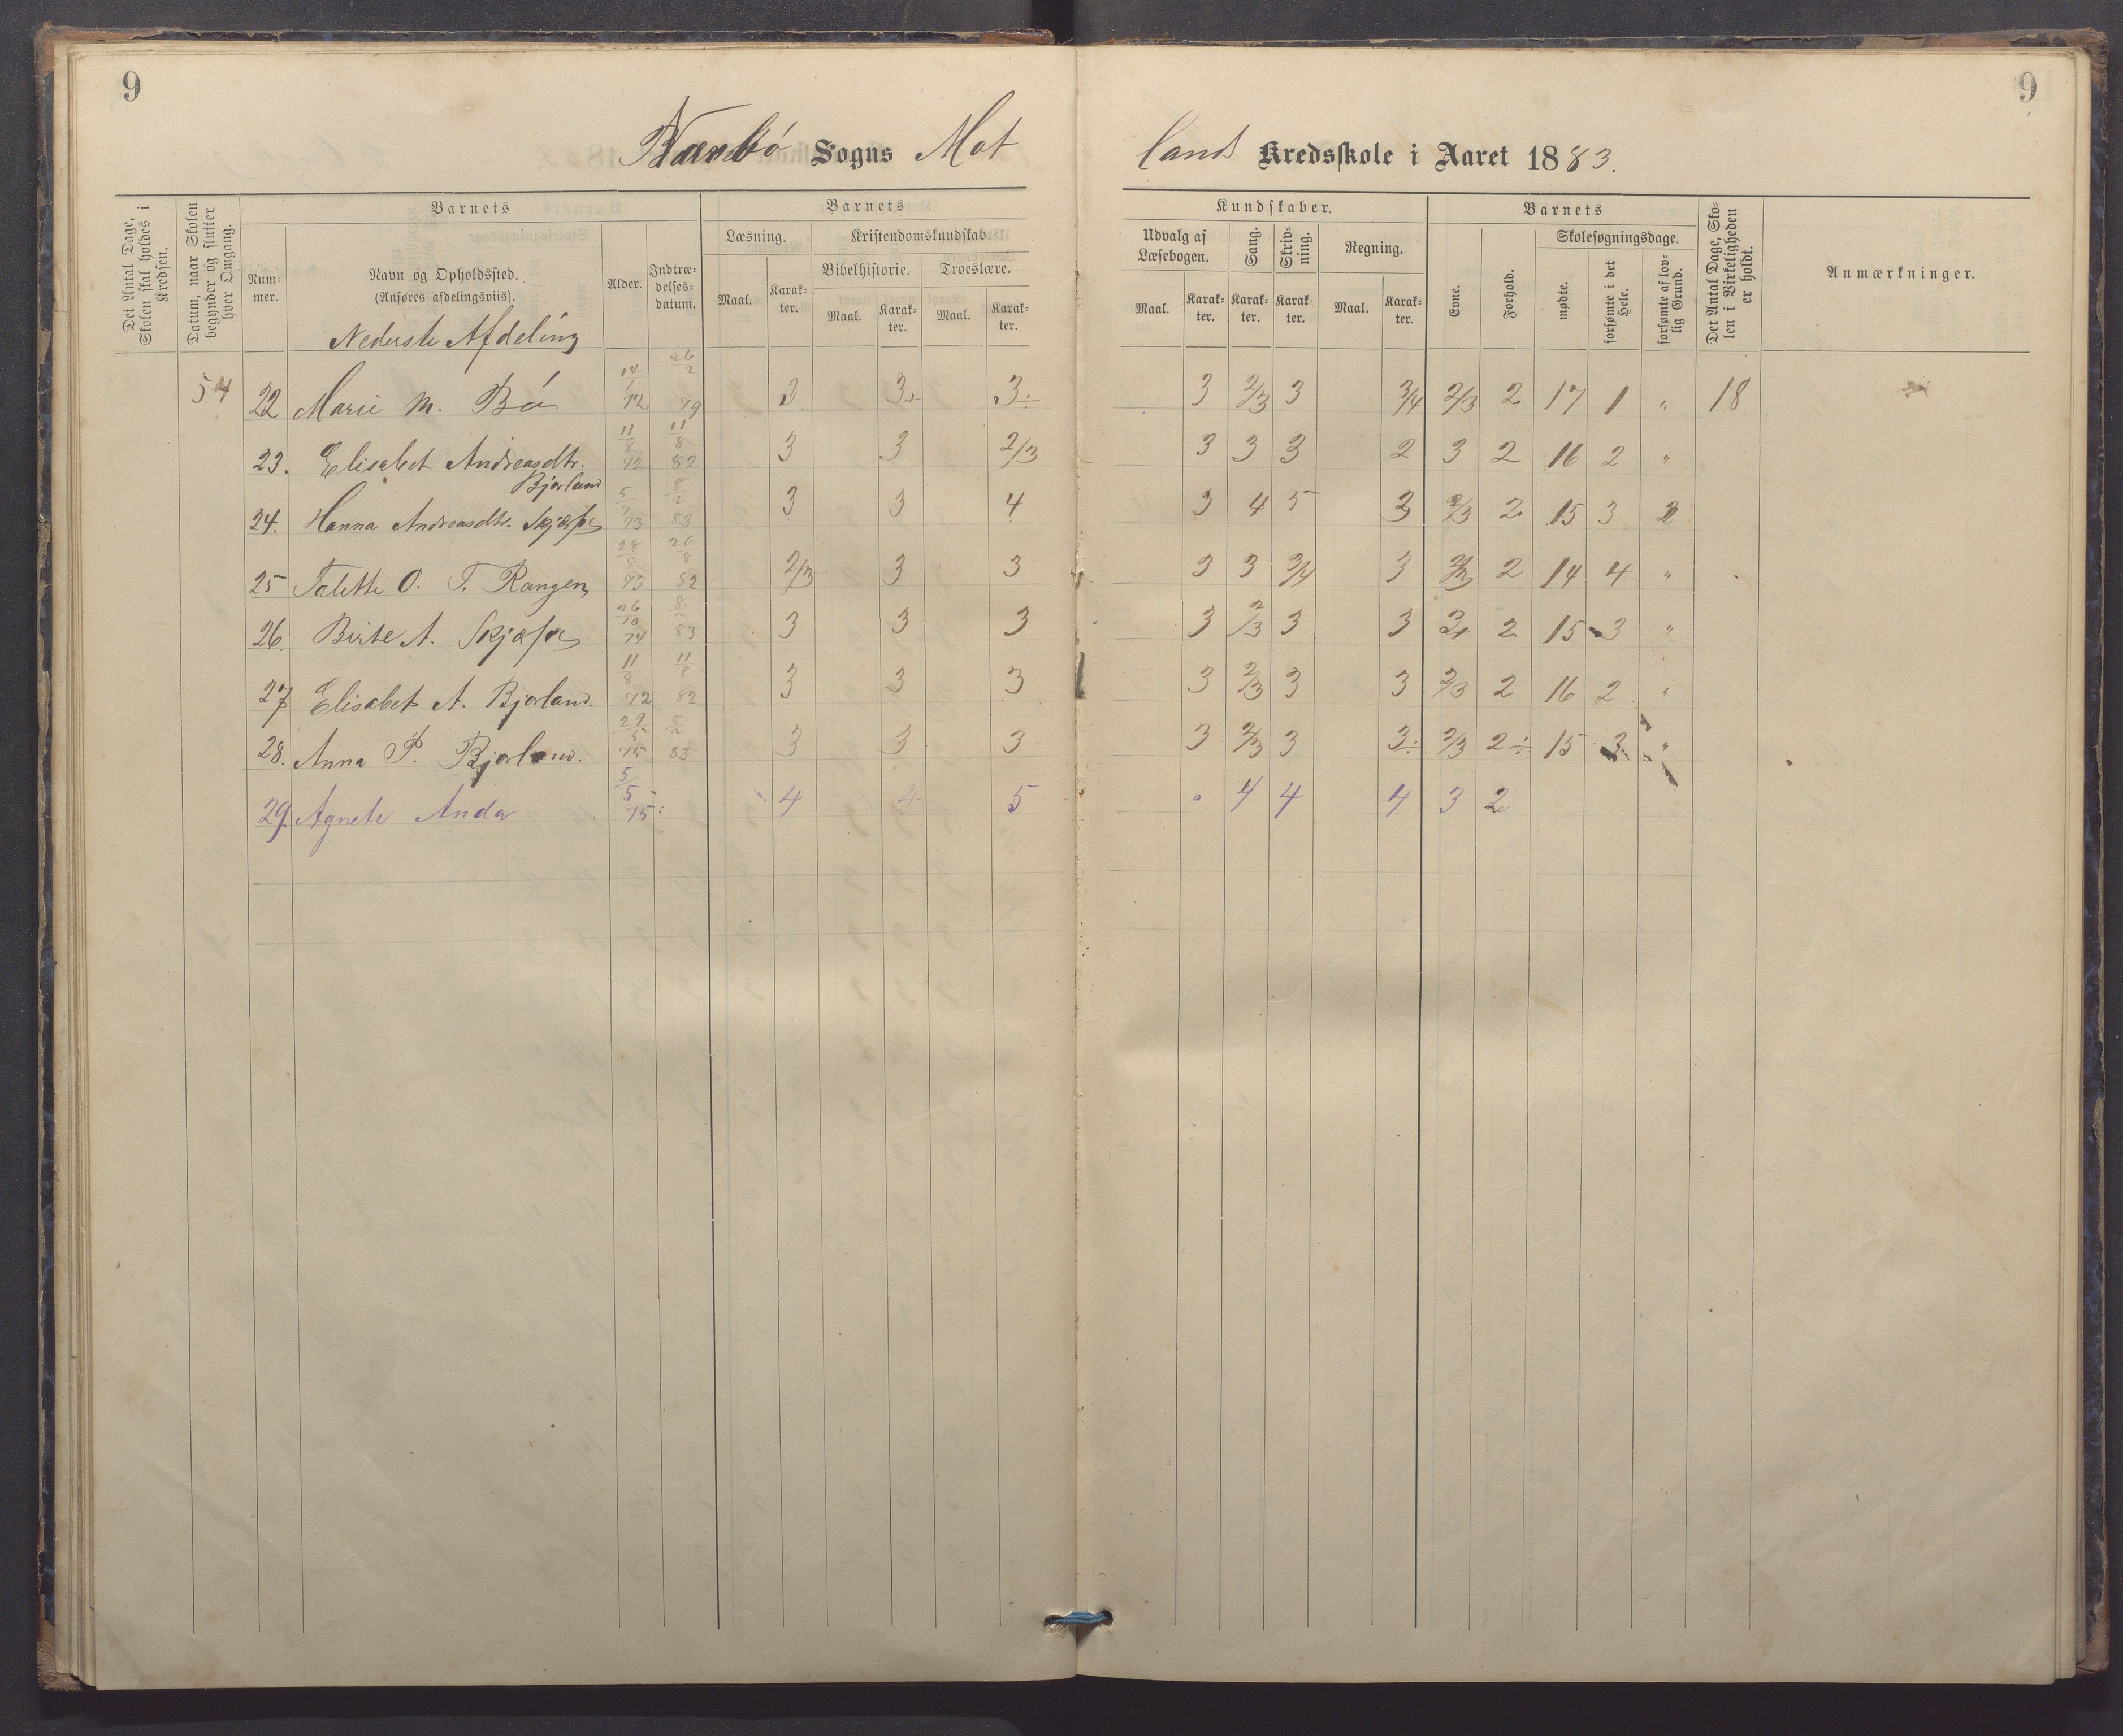 9
9
Sogns Mot
land Kredsskole i Aaret 1883.
Det Antal Dage, Skolen skal holdes i Kredsen.
Datum, naar Skolen begynder og slutter hver Omgang.
Barnets
Num-mer.
Navn og Opholdssted.
(Anføres afdelingsviis).
Alder.
Indtræ-delses-datum.
Barnets
Læsning.
Maal.
Karak-ter.
Kristendomskundskab.
Bibelhistorie.
Maal.
Karak-ter.
Troeslære.
Maal.
Karak-ter.
Kundskaber.
Udvalg af Læsebogen.
Maal.
Karak-ter.
Sang.
Karak-ter.
Skriv-ning.
Karak-ter.
Regning.
Maal.
Karak-ter.
Barnets
Evne.
Forhold.
Skolesøgningsdage.
mødte.
forsømte i det Hele.
forsømte af lov-lig Grund.
Det Antal Dage, Sko-len i Virkeligheden er holdt.
Anmærkninger.
Nederste Afdeling
54 22 Marie M. Bö 14/1 72 26/2 79 3 3+ 3÷ 3 2/3 3 3/4 2/3 2 17 1 " 18
23. Elisabet Andreasdtr. Bjorland 11/8 72 11/8 82 3 3 2/3 3 3 3 2 3 2 16 2 "
24. Hanna Andreasdtr. 73 8/2 83 3 3 4 3 4 5 3 2/3 2 15 3
25 Talette O. T. Rangen 28/8 73 26/8 82 2/3 3 3 3 3 3/4 3 2 14 4 "
26. Birte A. 26/10 74 8/2 83 3 3 3 3 2/3 3 3 3+ 2 15 3 "
27 Elisabet A. Bjorland. 11/8 72 11/8 82 3 3 3 3 2/3 3 3 2/3 2 16 2 "
28. Anna P. Bjorland. 29/5 75 8/2 83 3 3 3 3 2/3 3 3÷ 2/3 2÷ 15 3 "
29. Agnete Anda 5/5 75 4 4 5 4 4 4 3 2